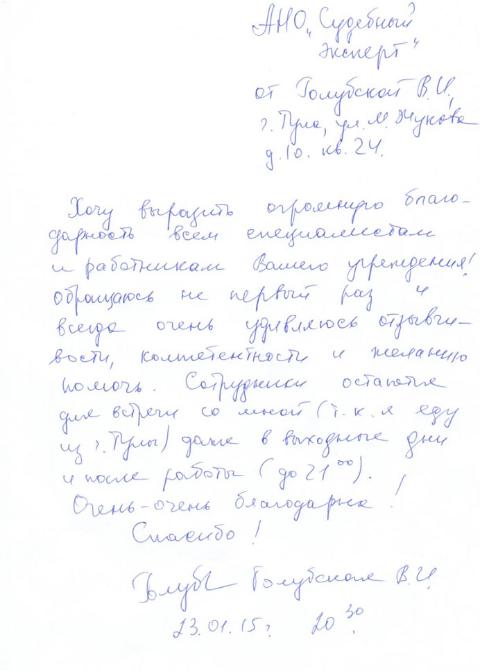 АНО „Судебный
Эксперт"
от Голубской В.И,
г. Тула, ул. М. Жукова
д. 10. кв. 24.
Хочу выразить огромную благо-
дарность всем специалистам
и работникам Вашего учреждения!
Обращаюсь не первый раз и
всегда очень удивляюсь отзывчи-
вости, компетентности и желанию
помочь. Сотрудники остаются
для встречи со мной (т.к. я еду
из г. Тулы) даже в выходные дни
и после работы (до 21⁰⁰).
Очень-очень благодарна!
Спасибо!
Голубская В.И.
23.01.15г. 20³⁰.